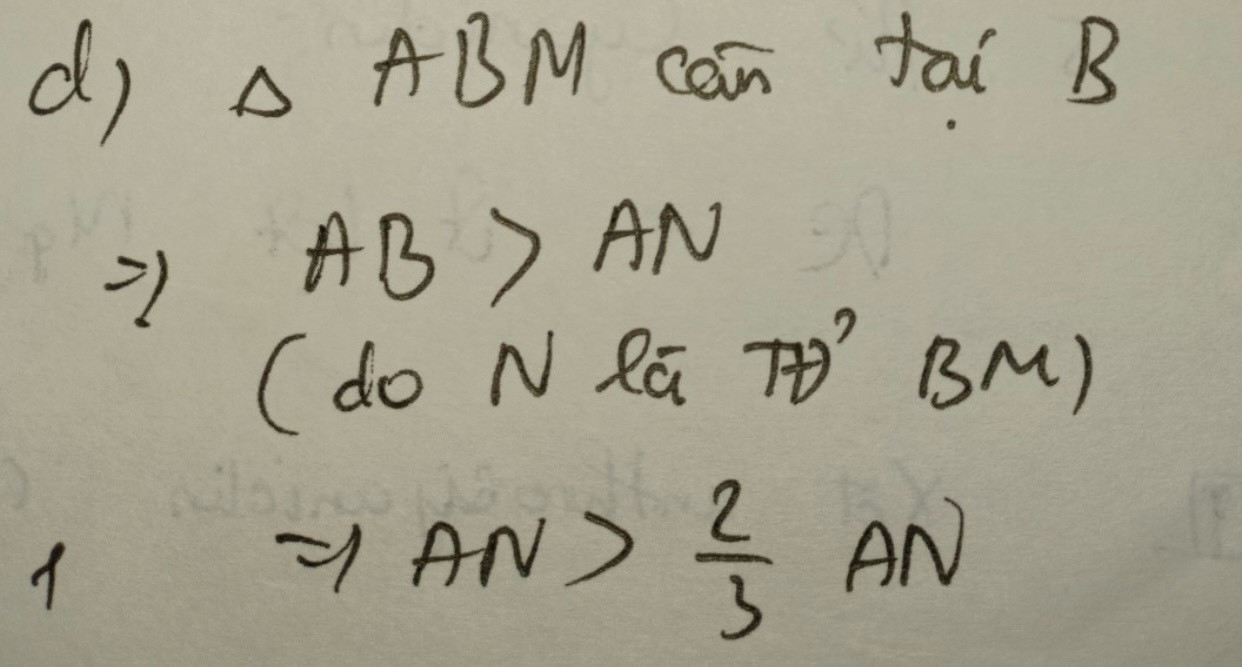 d) Δ ABM cân tại B
=> AB > AN
(do N là TĐ' BM)
=> AN > 2/3 AN